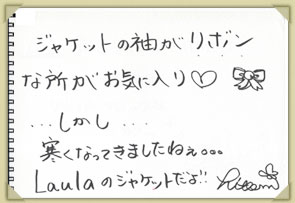 ジャケットの袖がリボン
な所がお気に入り♡
...しかし...
寒くなってきましたねぇ。。。
Laulaのジャケットだよ!!